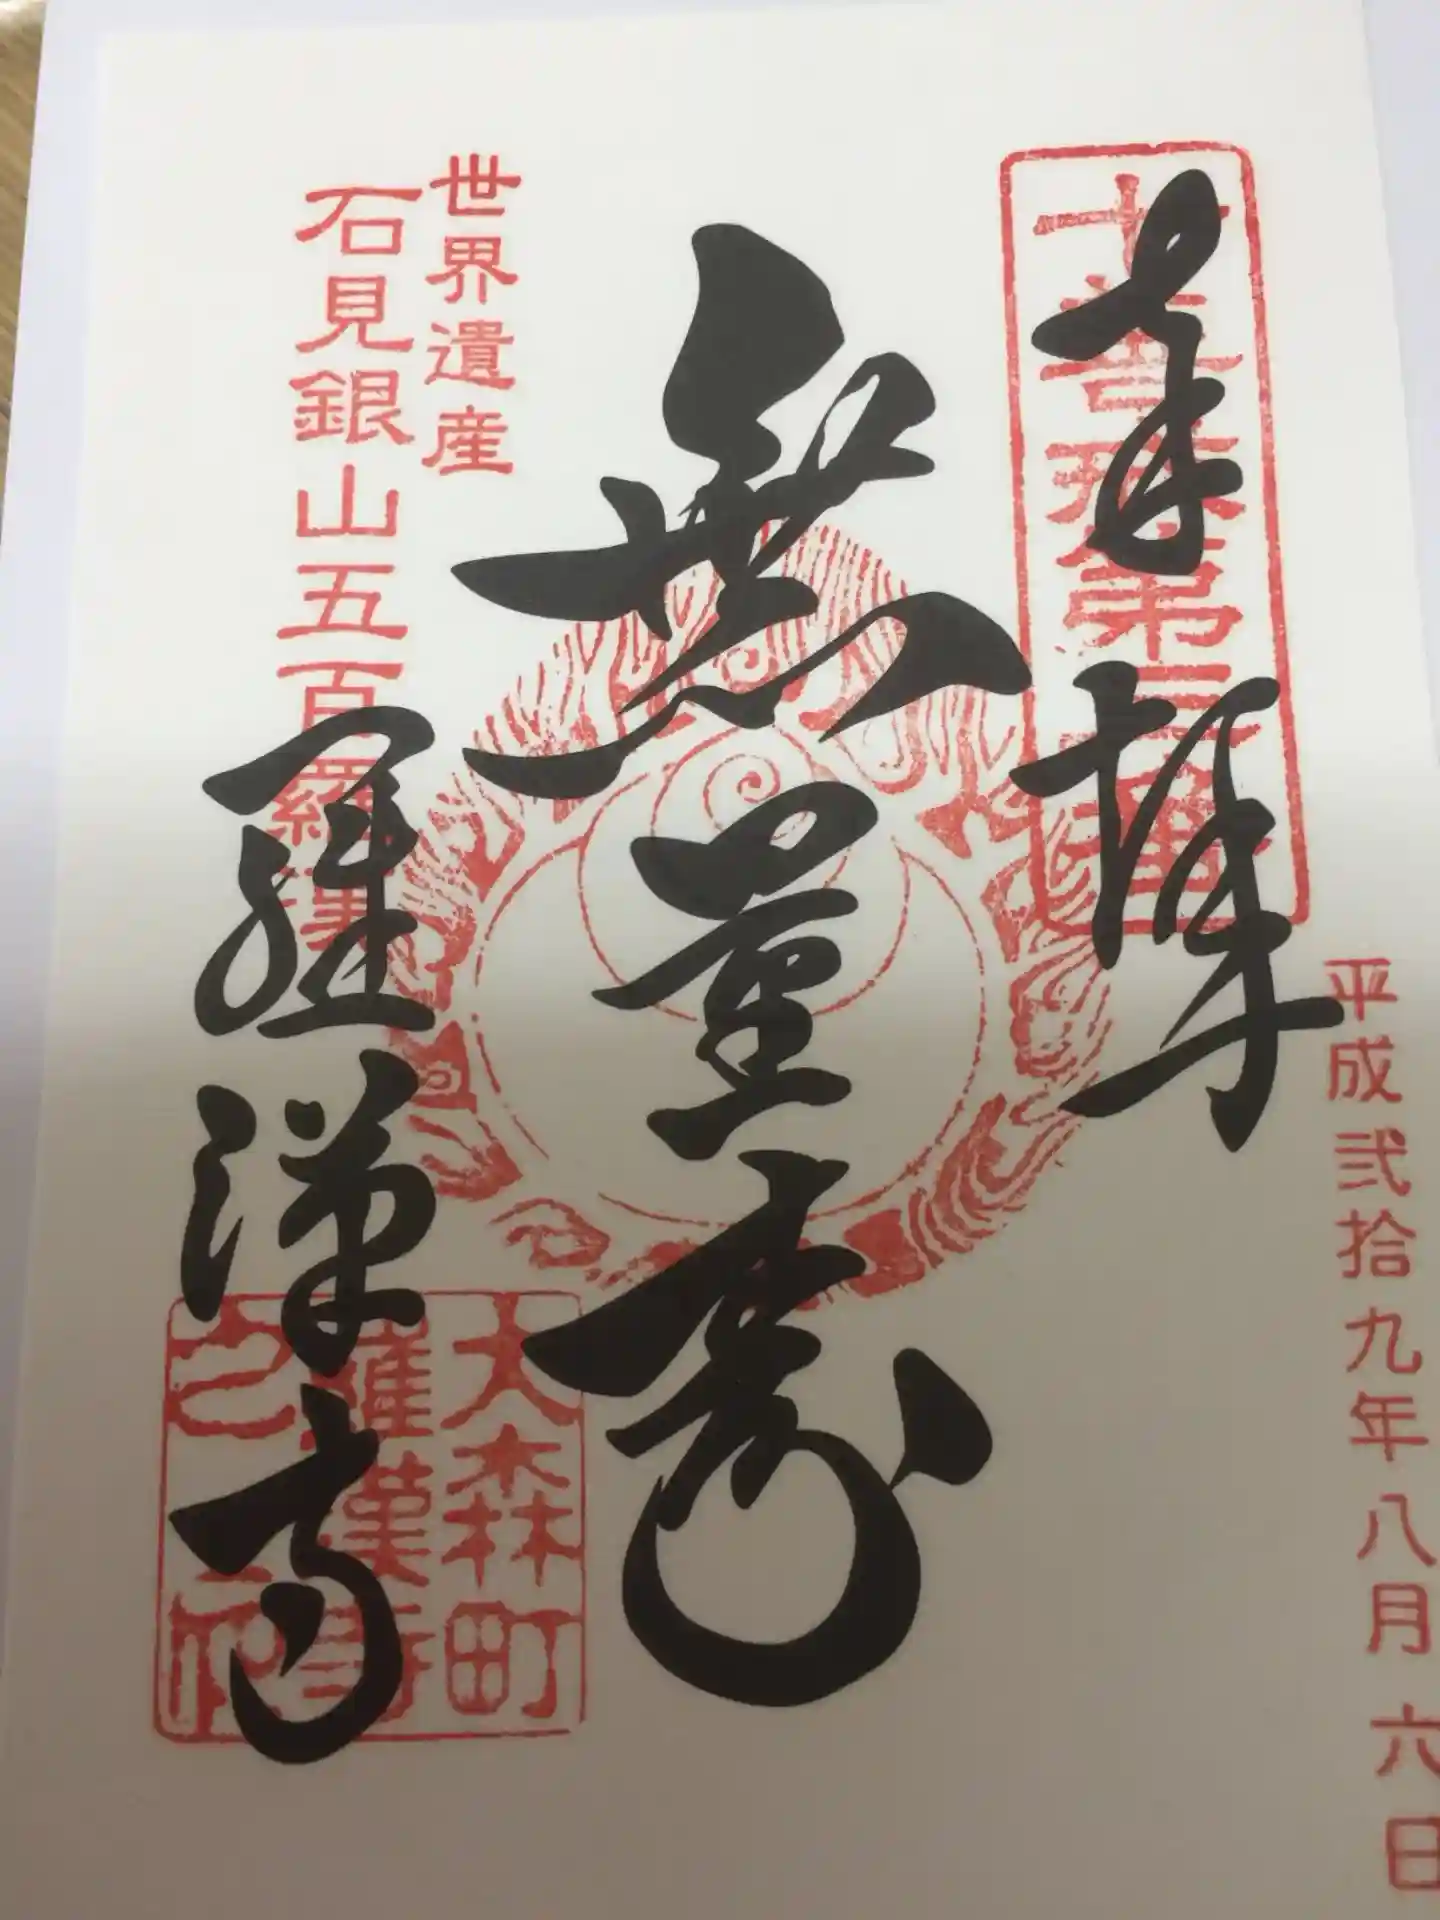 平成弐拾九年八月六日
奉拝
無量寿
世界遺産
石見銀山五百羅漢
羅漢寺
大森町
羅漢寺